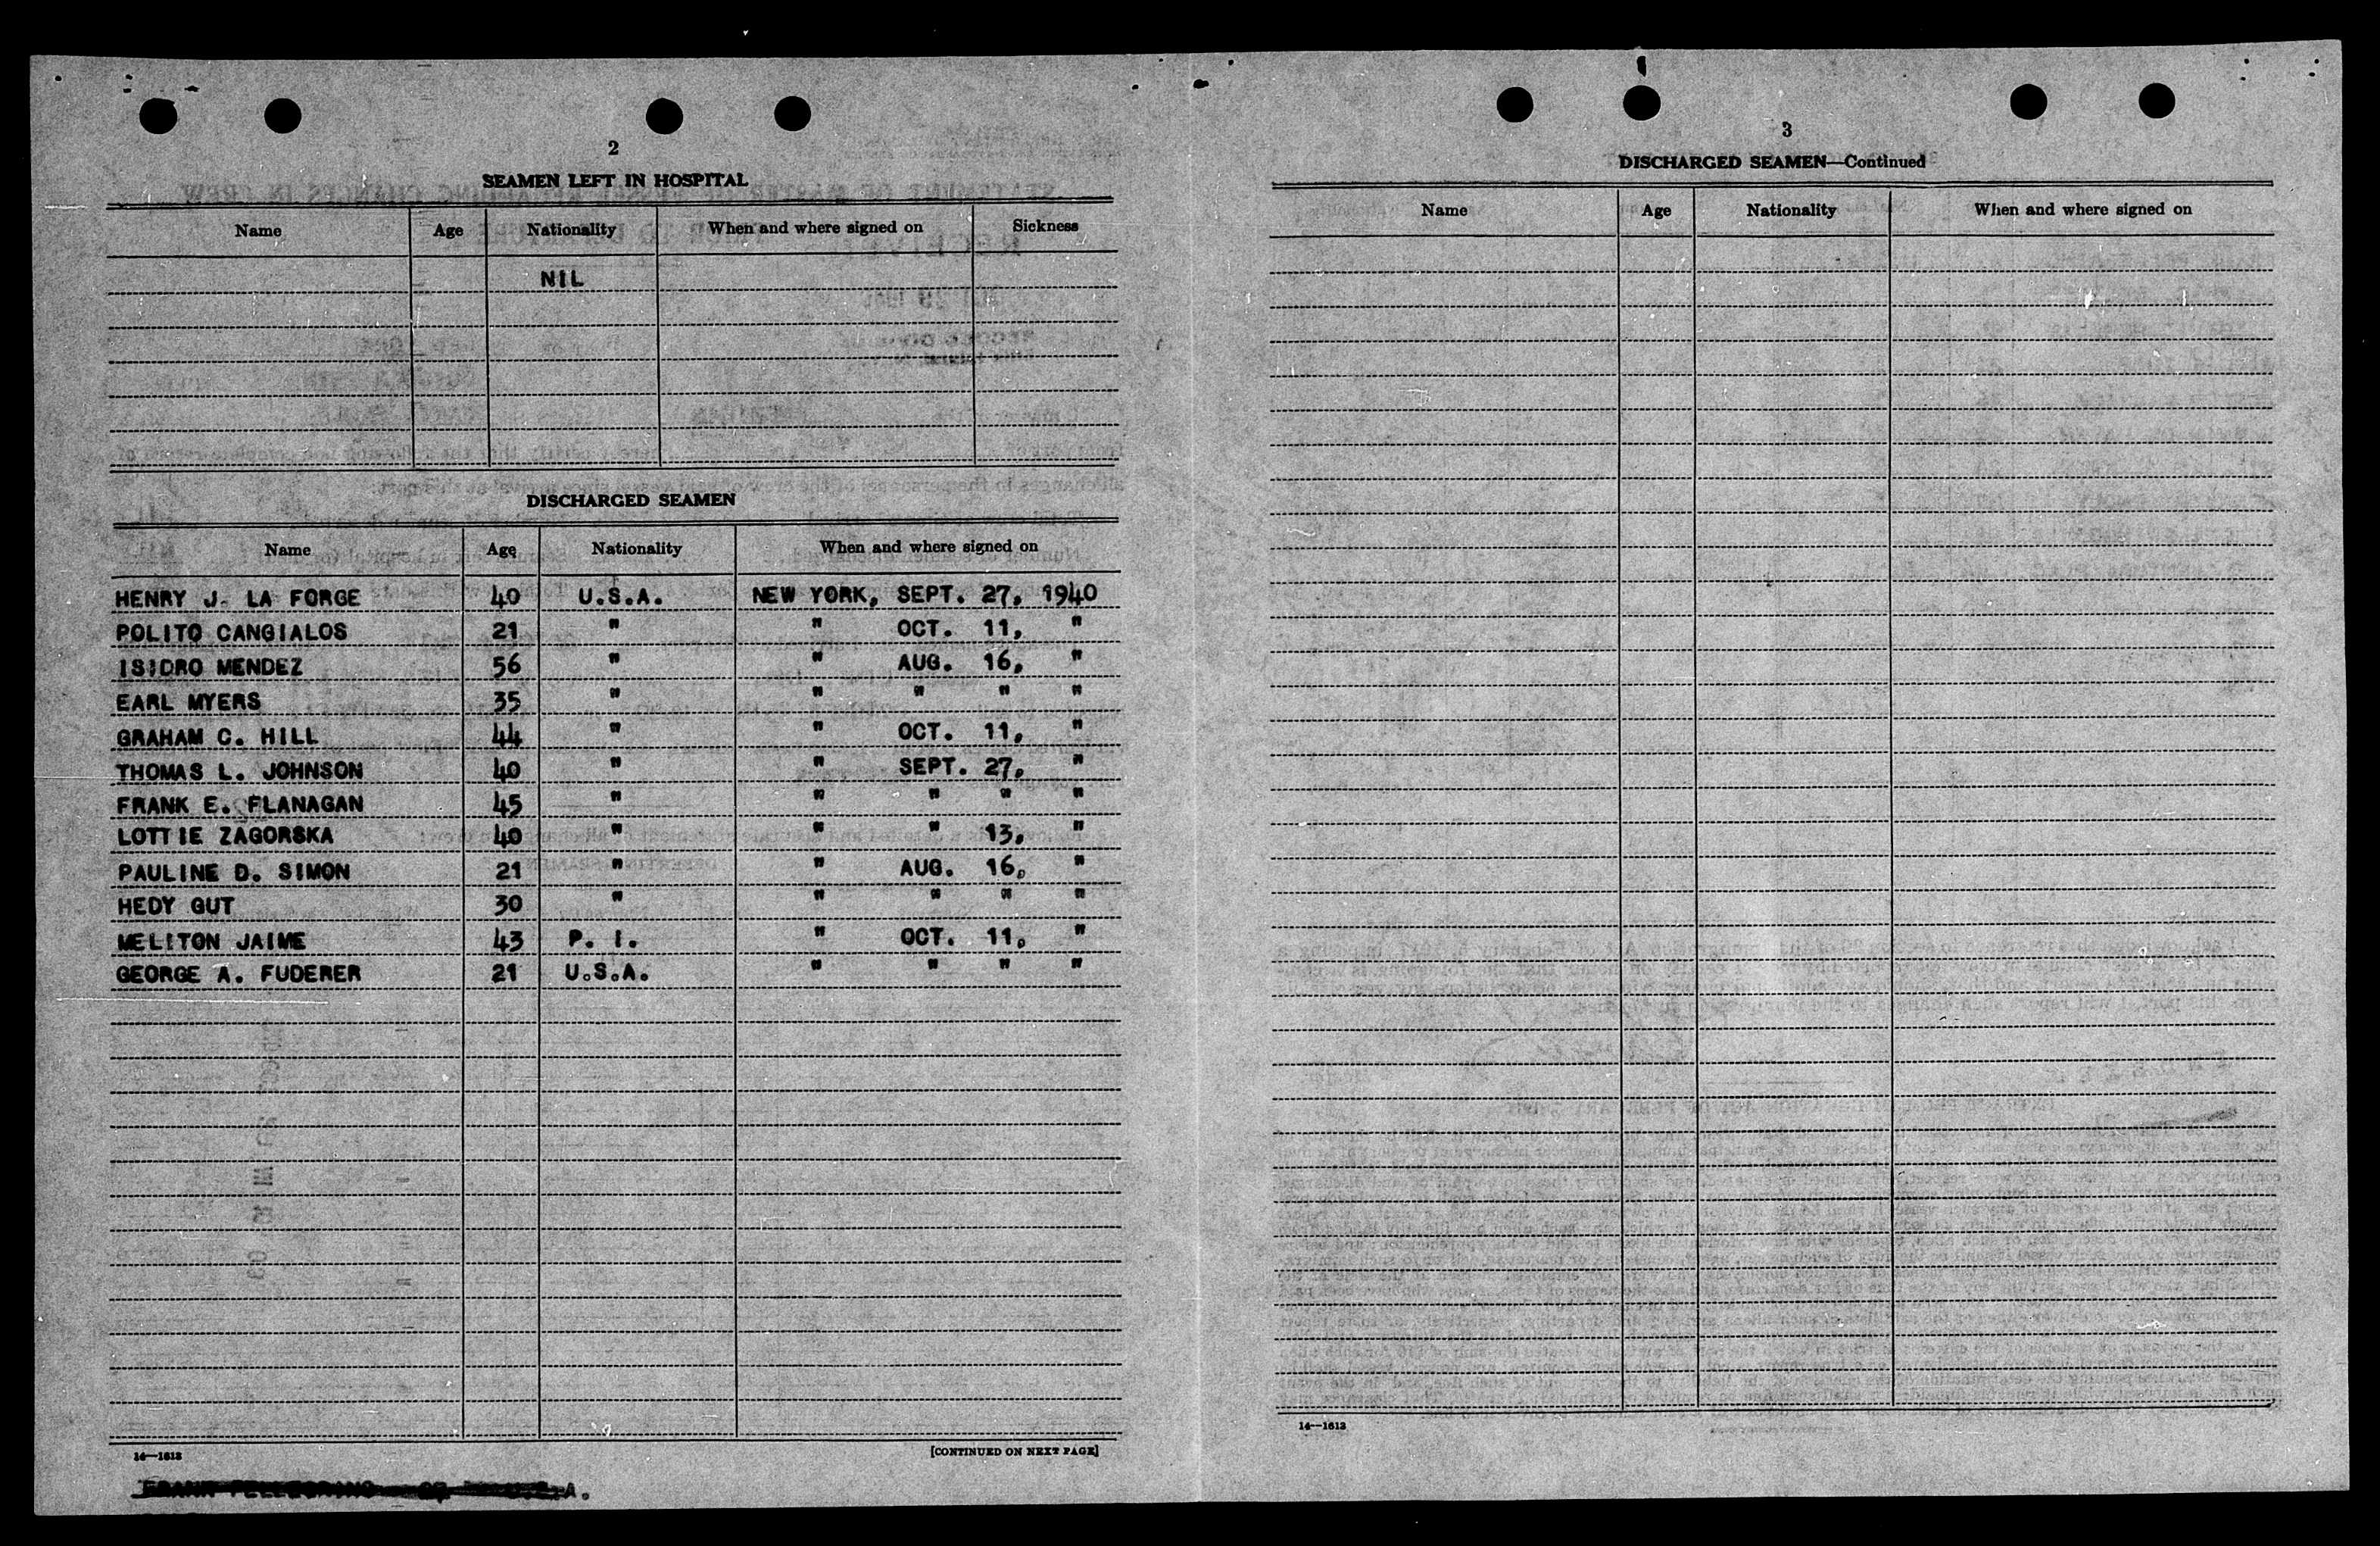 2
SEAMEN LEFT IN HOSPITAL
Name Age Nationality When and where signed on Sickness
NIL
DISCHARGED SEAMEN
Name Age Nationality When and where signed on
HENRY J. LA FORGE 40 U.S.A. NEW YORK, SEPT. 27, 1940
POLITO CANGIALOS 21 " " OCT. 11, "
ISIDRO MENDEZ 56 " " AUG. 16, "
EARL MYERS 35 " " " " "
GRAHAM C. HILL 44 " " OCT. 11, "
THOMAS L. JOHNSON 40 " " SEPT. 27, "
FRANK E. FLANAGAN 45 " " " " "
LOTTIE ZAGORSKA 40 " " " 13, "
PAULINE D. SIMON 21 " " AUG. 16, "
HEDY GUT 30 " " " " "
MELITON JAIME 43 P. I. " OCT. 11, "
GEORGE A. FUDERER 21 U.S.A. " " " "
14—1613
[CONTINUED ON NEXT PAGE]
FRANK PELLEGRINO U.S.A.
3
DISCHARGED SEAMEN—Continued
Name Age Nationality When and where signed on
14—1613